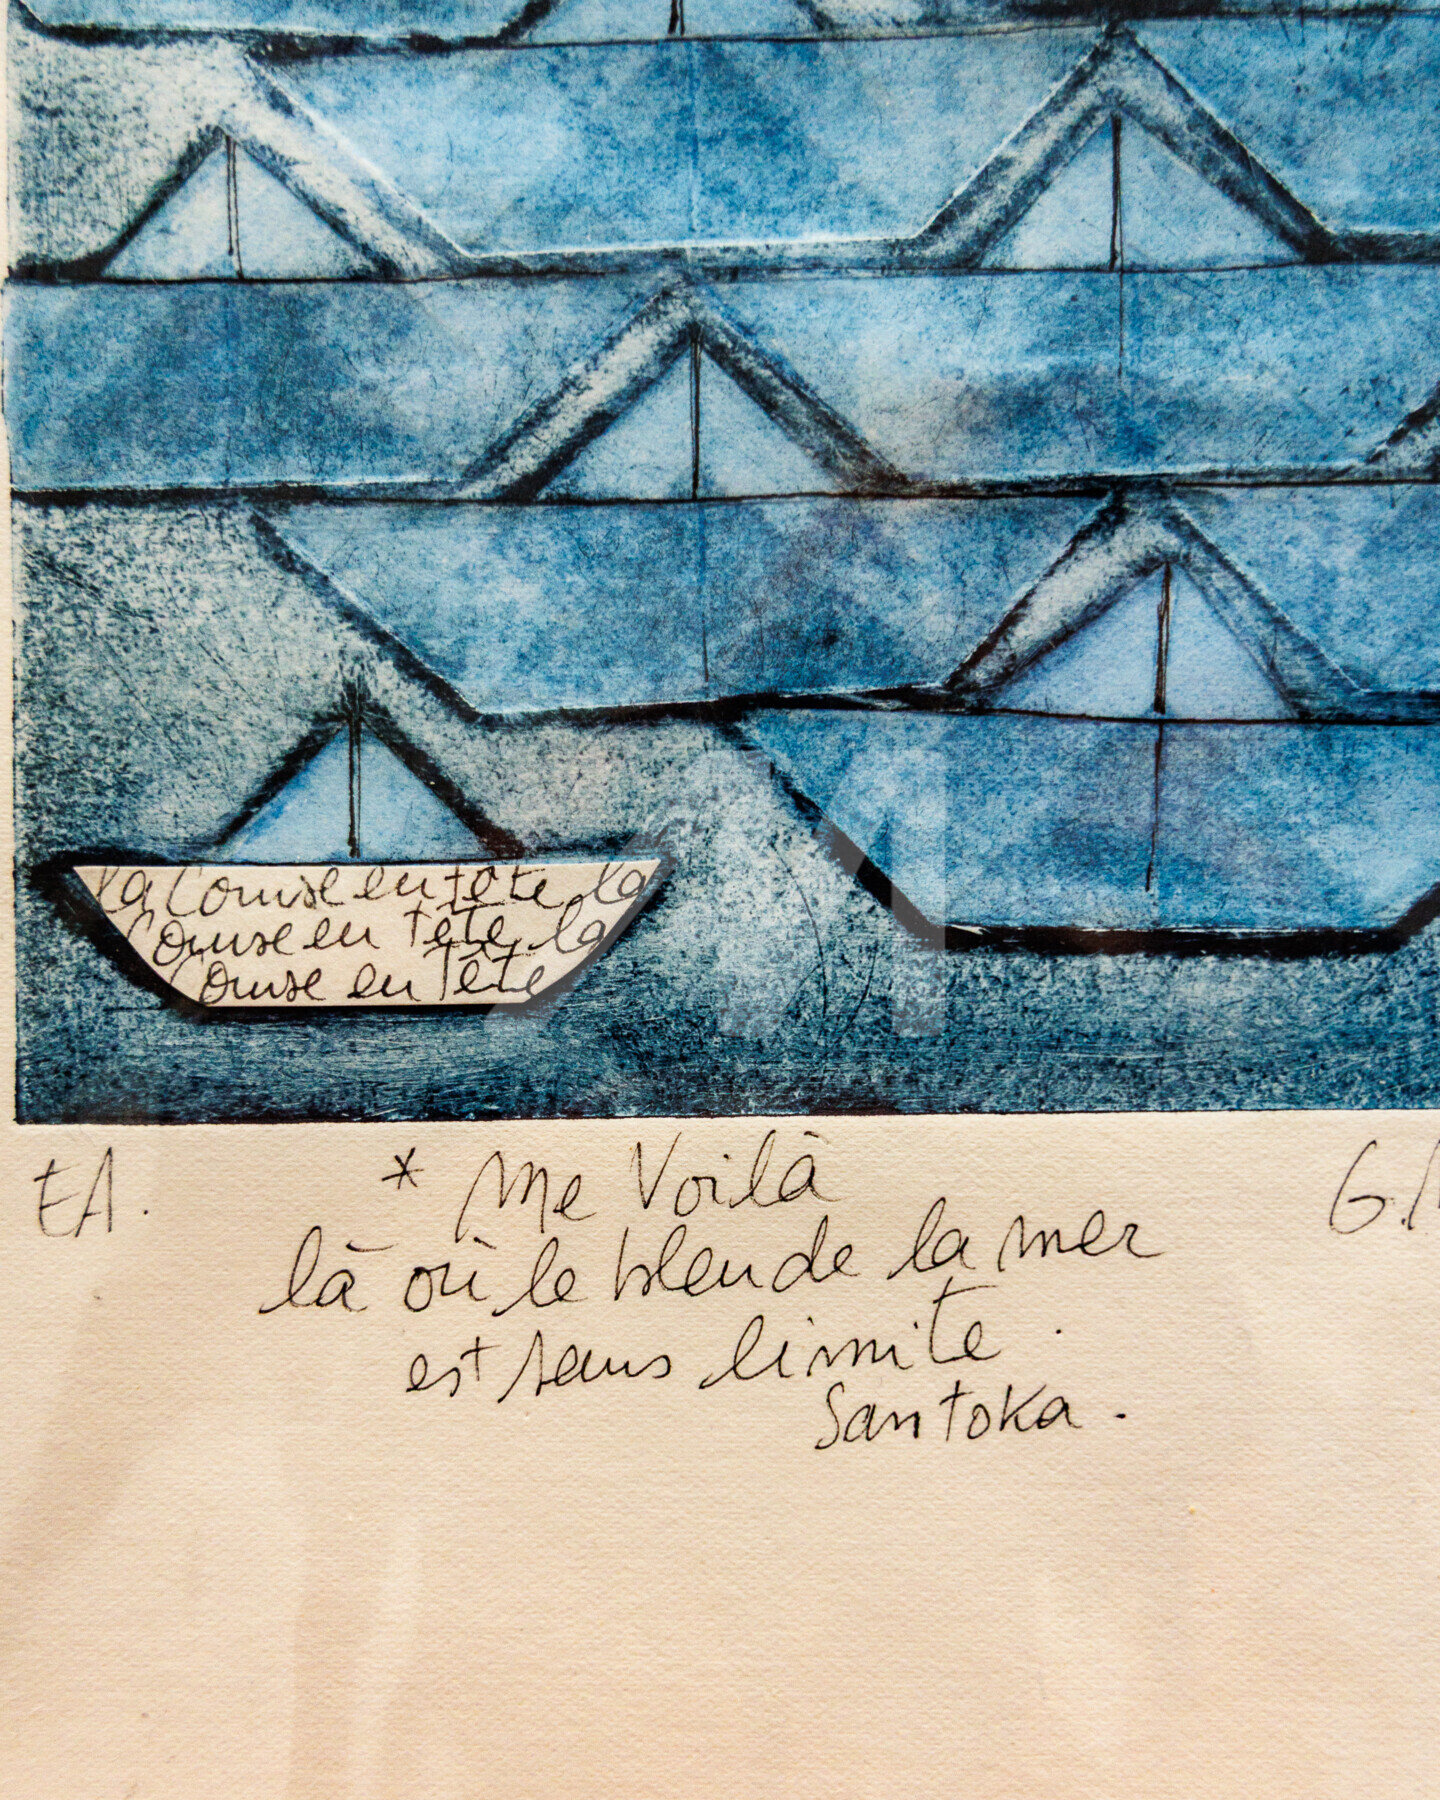 la Course en tête la
Course en tête, la
Course en tête
EA.
* Me Voilà
là où le bleu de la mer
est sans limite.
Santoka.
G.